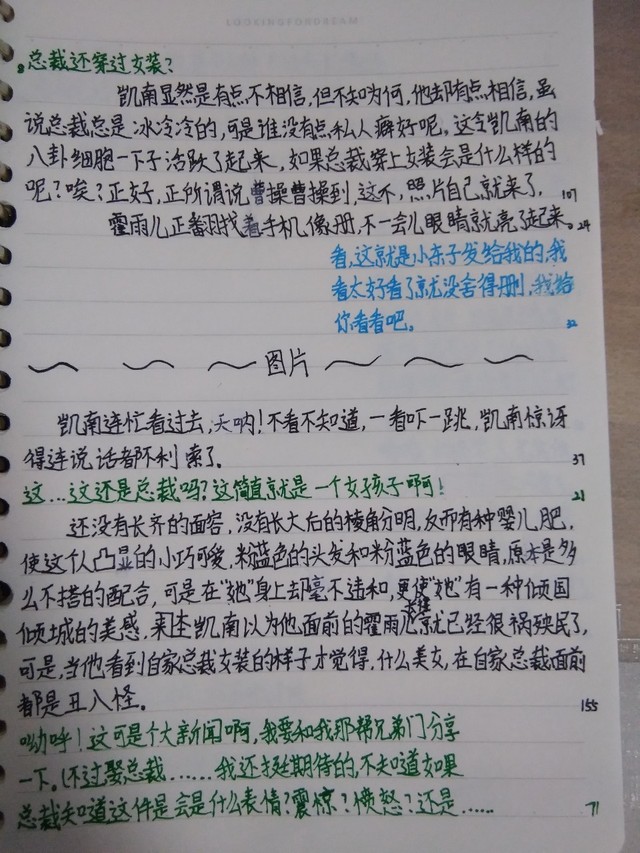 LOOKINGFORDREAM
总裁还穿过女装?
凯南显然是有点不相信,但不知为何,他却有点相信,虽
说总裁总是冰冷冷的,可是谁没有点私人癖好呢。这令凯南的
八卦细胞一下子活跃了起来,如果总裁穿上女装会是什么样的
呢?唉?正好,正所谓说曹操曹操到,这不,照片自己就来了。 107
霍雨儿正翻找着手机像册,不一会儿眼睛就亮了起来。 24
看,这就是小东子发给我的,我
看太好看了就没舍得删,我给
你看看吧。 32
图片
凯南连忙看过去,天呐!不看不知道,一看吓一跳,凯南惊讶
得连说话都不利索了。 37
这...这还是总裁吗?这简直就是一个女孩子啊! 21
还没有长齐的面容,没有长大后的棱角分明,反而有种婴儿肥,
使这个人凸显的小巧可爱,粉蓝色的头发和粉蓝色的眼睛,原本是多
么不搭的配合,可是在"她"身上却毫不违和,更使"她"有一种倾国
倾城的美感,来凯南以为他面前的霍雨儿就已经很祸殃民了,
可是,当他看到自家总裁女装的样子才觉得,什么美女,在自家总裁面前
都是丑八怪。 155
呦呼!这可是个大新闻啊,我要和我那帮兄弟们分享
一下。(不过娶总裁......我还挺期待的,不知道如果
总裁知道这件是会是什么表情?震惊?愤怒?还是...... 71